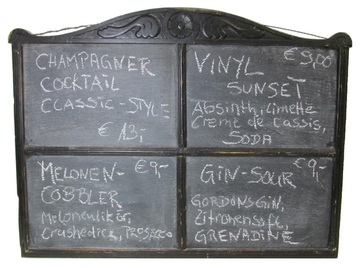 CHAMPAGNER
COCKTAIL
CLASSIC-STYLE
€ 13,-
VINYL € 9,00
SUNSET
Absinth, Limette
Creme de Cassis,
SODA
MELONEN- € 9,-
COBBLER
Melonenlikör,
Crushedice, PROSECCO
GIN-SOUR € 9,-
GORDONSGIN,
Zitronensaft,
GRENADINE